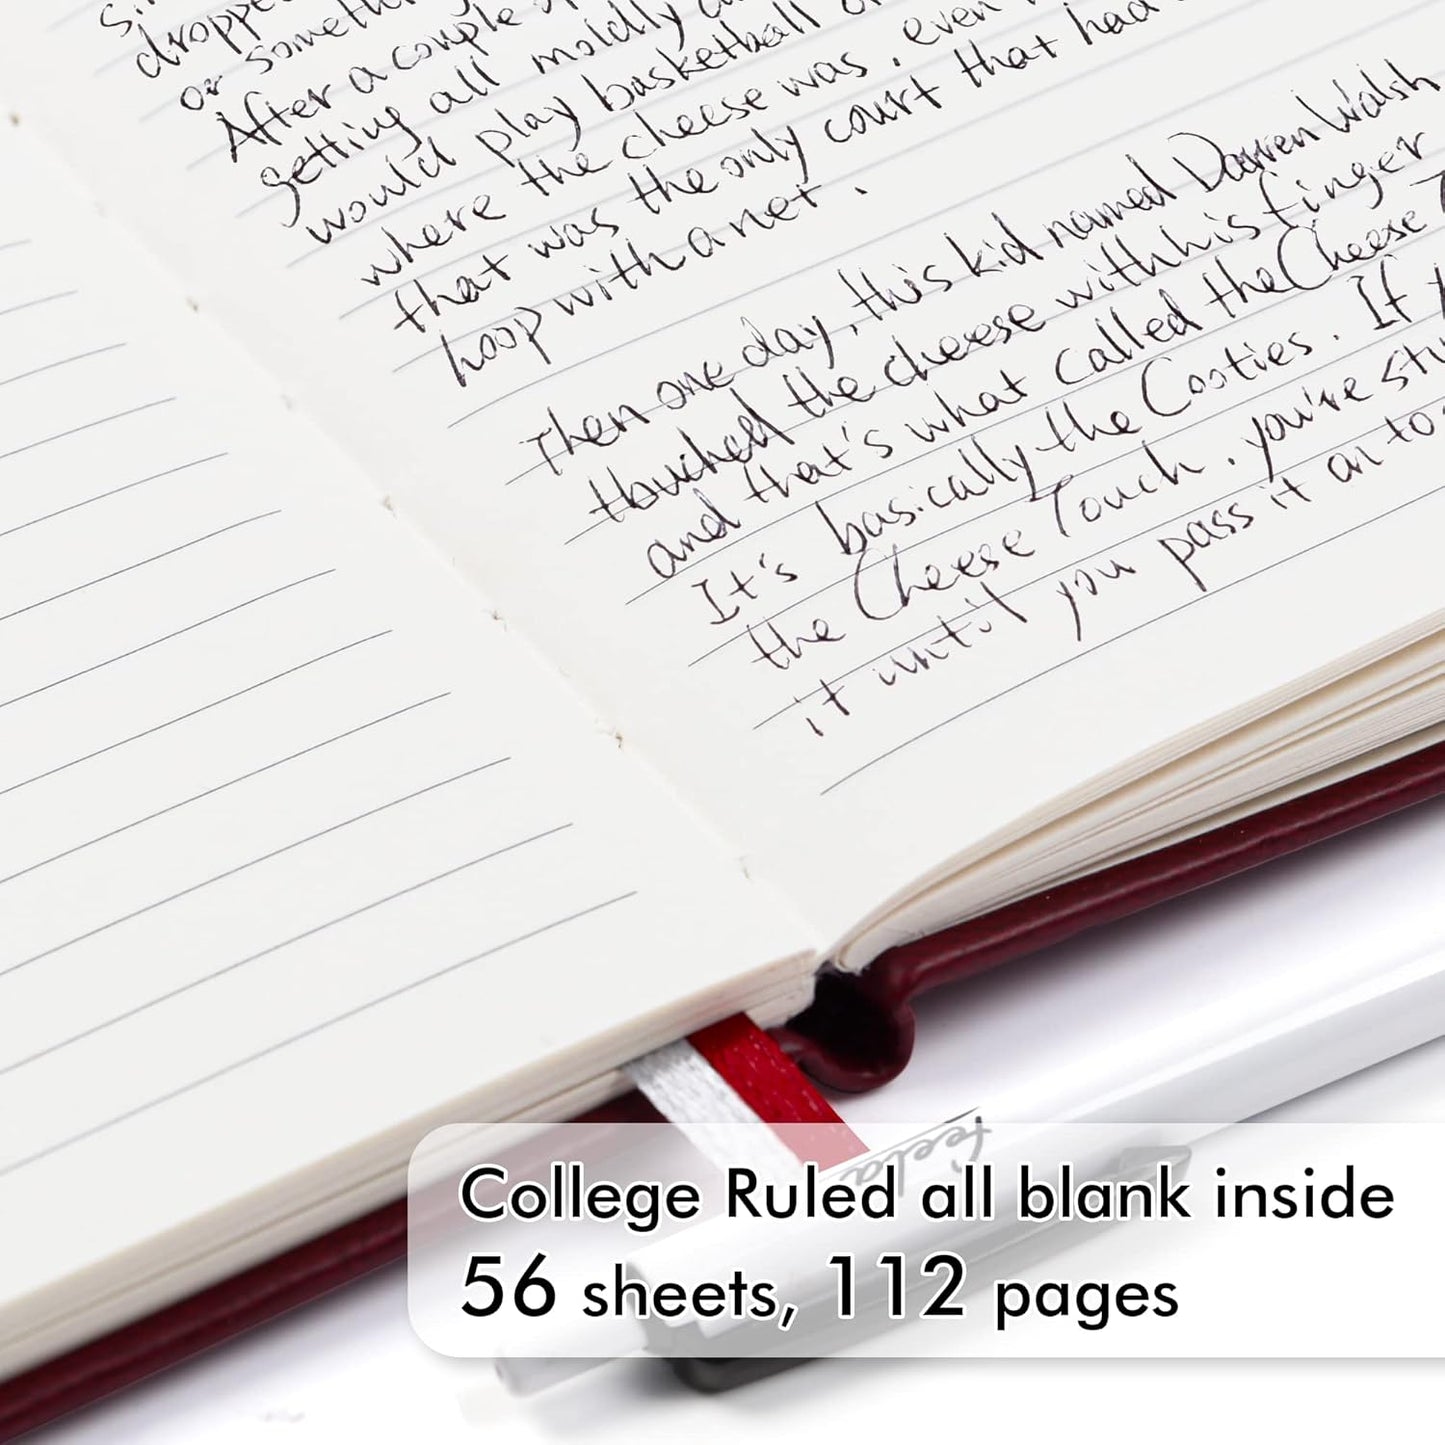 dropped
or someth
After a couple
getting all moldly a
would play basketball o
where the cheese was, even
that was the only court that had
hoop with a net.
Then one day, this kid named Darren Walsh
touched the cheese with his finger
and that's what called the Cheese T
It's basically the Cooties. If y
the Cheese Touch, you're stu
it until you pass it on to
feela
College Ruled all blank inside
56 sheets, 112 pages